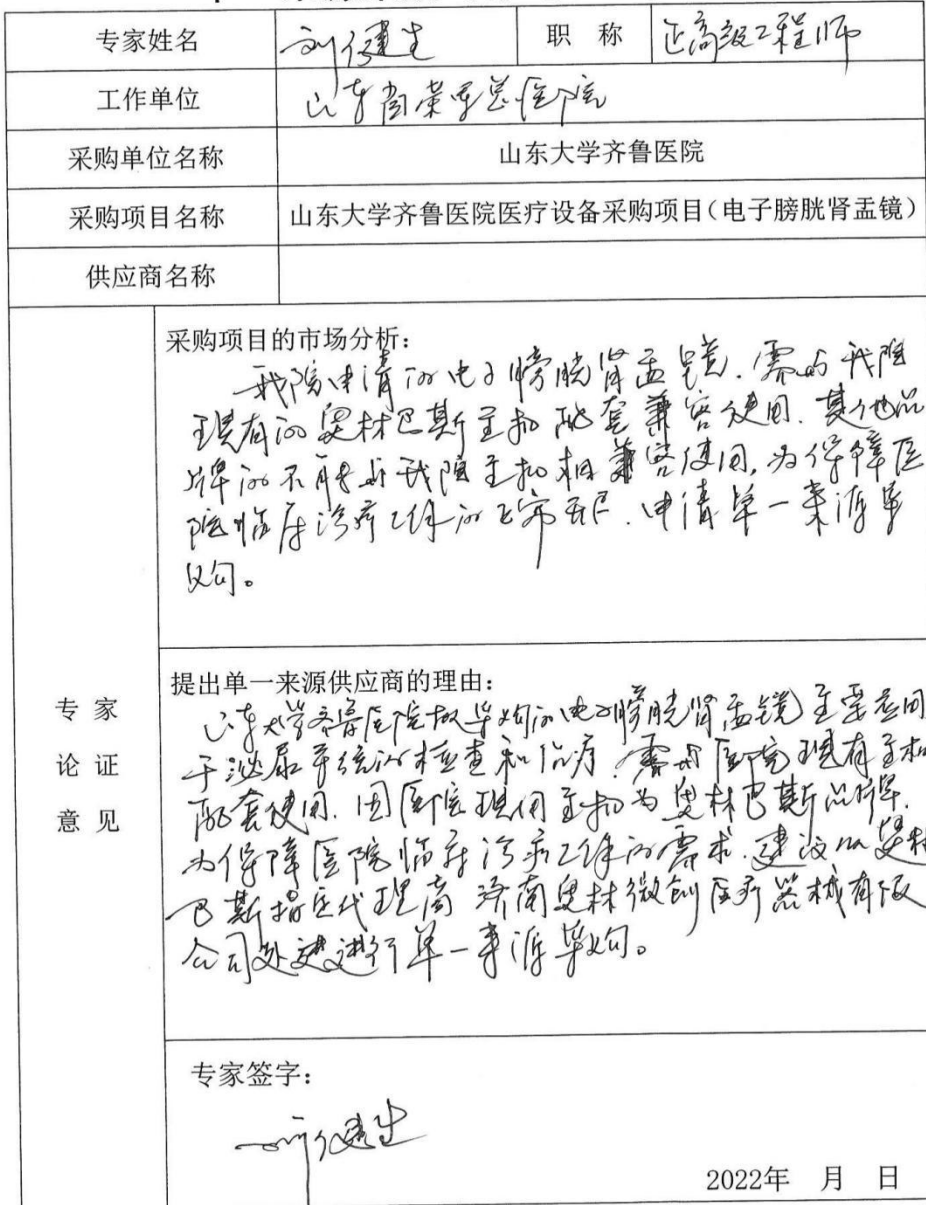 专家姓名 刘健生 职 称 正高级工程师
工作单位 山东省荣军总医院
采购单位名称 山东大学齐鲁医院
采购项目名称 山东大学齐鲁医院医疗设备采购项目(电子膀胱肾盂镜)
供应商名称
采购项目的市场分析:
我院申请的电子膀胱肾盂镜，需与我院
现有的奥林巴斯主机配套兼容使用。其他品
牌的不能与我院主机相兼容使用，为保障医
院临床治疗工作的正常开展，申请单一来源采
购。
专 家
论 证
意 见
提出单一来源供应商的理由:
山东大学齐鲁医院拟采购的电子膀胱肾盂镜主要应用
于泌尿系统的检查和治疗，需与医院现有主机
配套使用，因医院现用主机为奥林巴斯品牌，
为保障医院临床治疗工作的需求，建议从奥林
巴斯指定代理商 济南奥林微创医疗器械有限
公司处进行单一来源采购。
专家签字:
刘健生
2022年 月 日